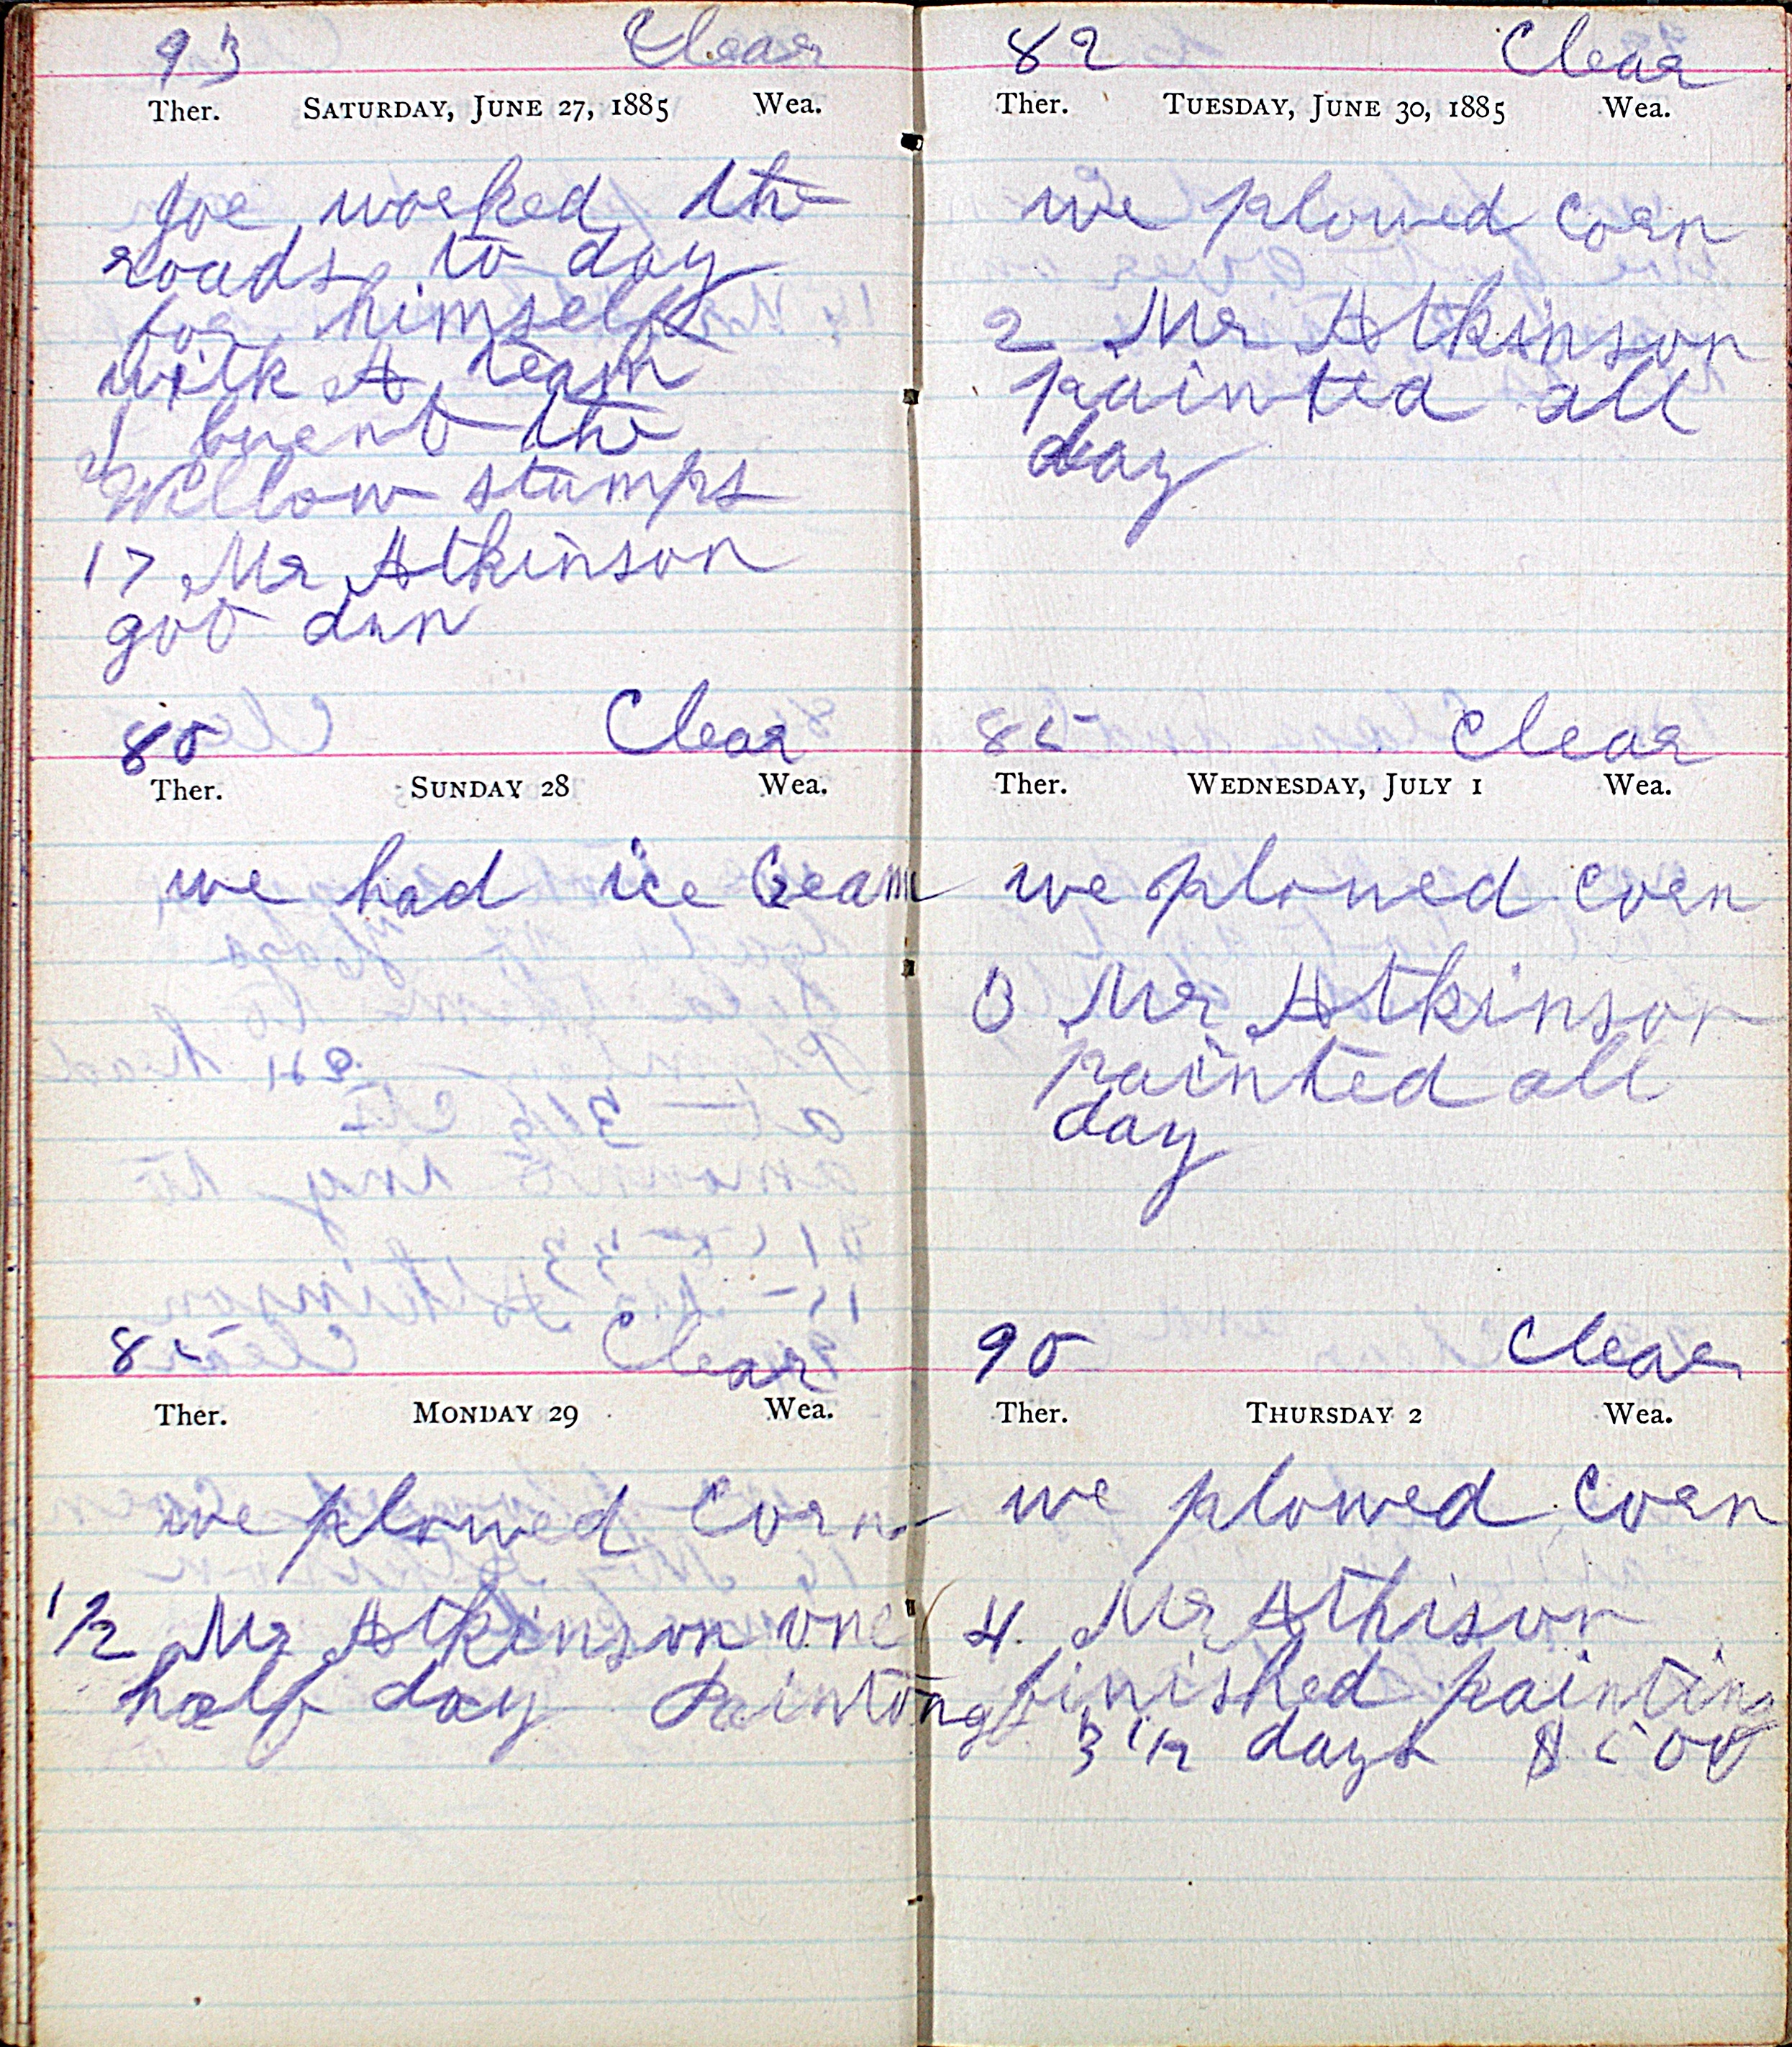 93 Clear
Ther. SATURDAY, JUNE 27, 1885 Wea.
Joe worked the
roads to day
for himself
with A team
I burnt the
Willow stumps
17 Mr Atkinson
got dun
80 Clear
Ther. SUNDAY 28 Wea.
we had ice Cream
85 Clear
Ther. MONDAY 29 Wea.
we plowed Corn
1/2 Mr Atkinson one
half day Painting
82 Clear
Ther. TUESDAY, JUNE 30, 1885 Wea.
we plowed corn
2 Mr Atkinson
painted all
day
85 Clear
Ther. WEDNESDAY, JULY 1 Wea.
we plowed corn
3 Mr Atkinson
painted all
day
90 Clear
Ther. THURSDAY 2 Wea.
we plowed corn
4 Mr Atkison
finished painting
3 1/2 days $ 5 00